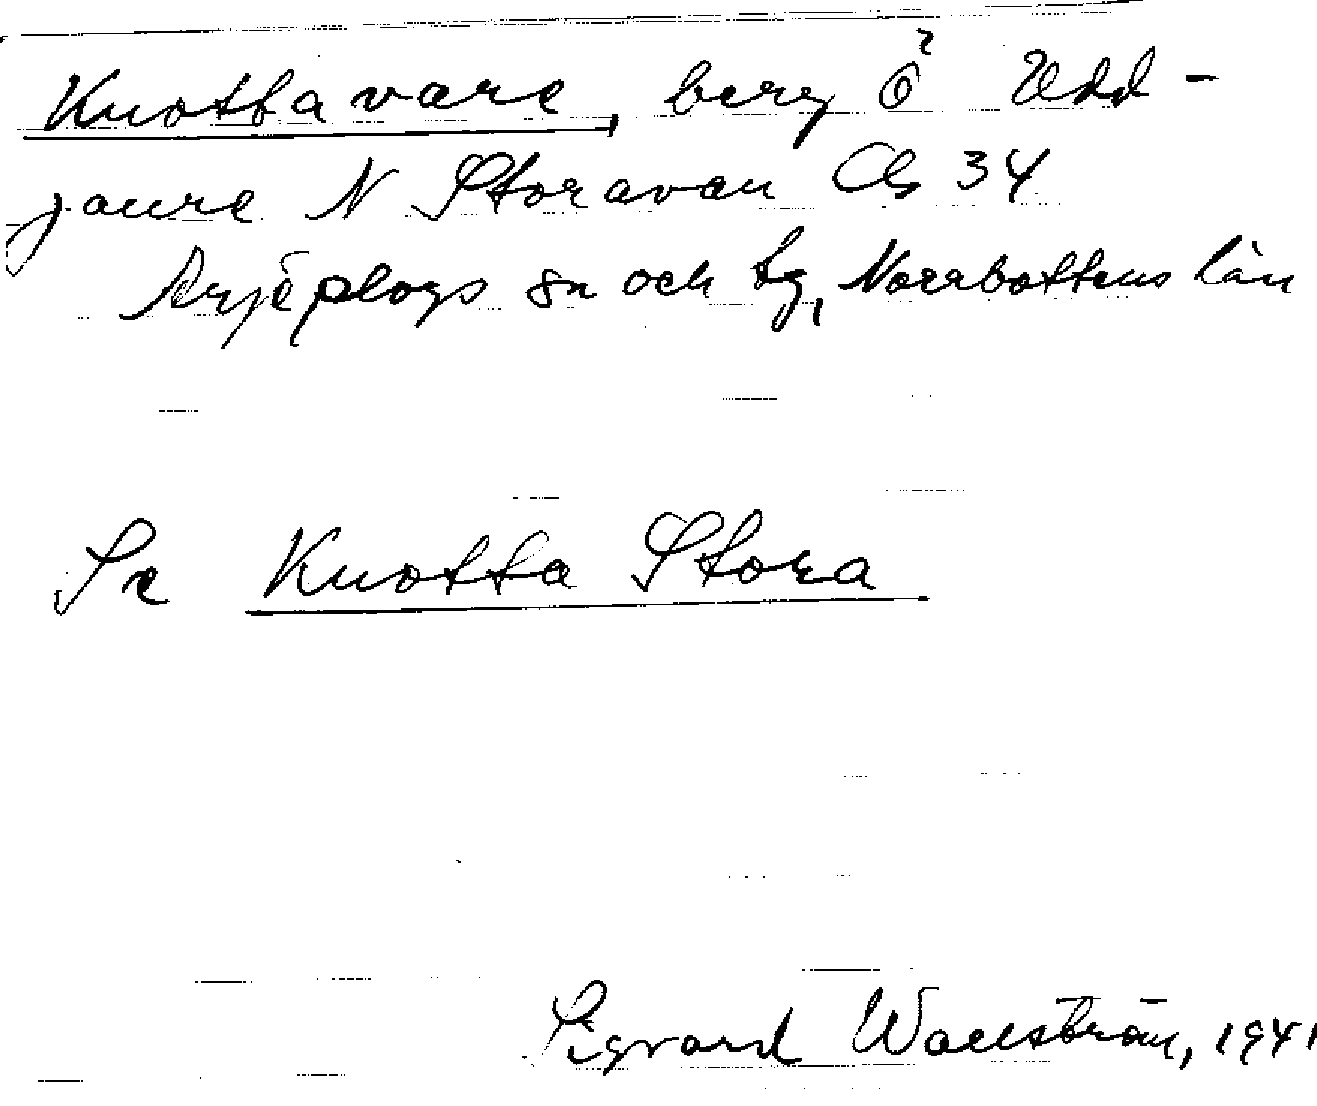 Knottavare, berg Ö Udd-
jaure N Storavan Cb 34
Arjeplogs sn och tg, Norrbottens län
Se Knotta Stora
Sigvard Wallström, 1941